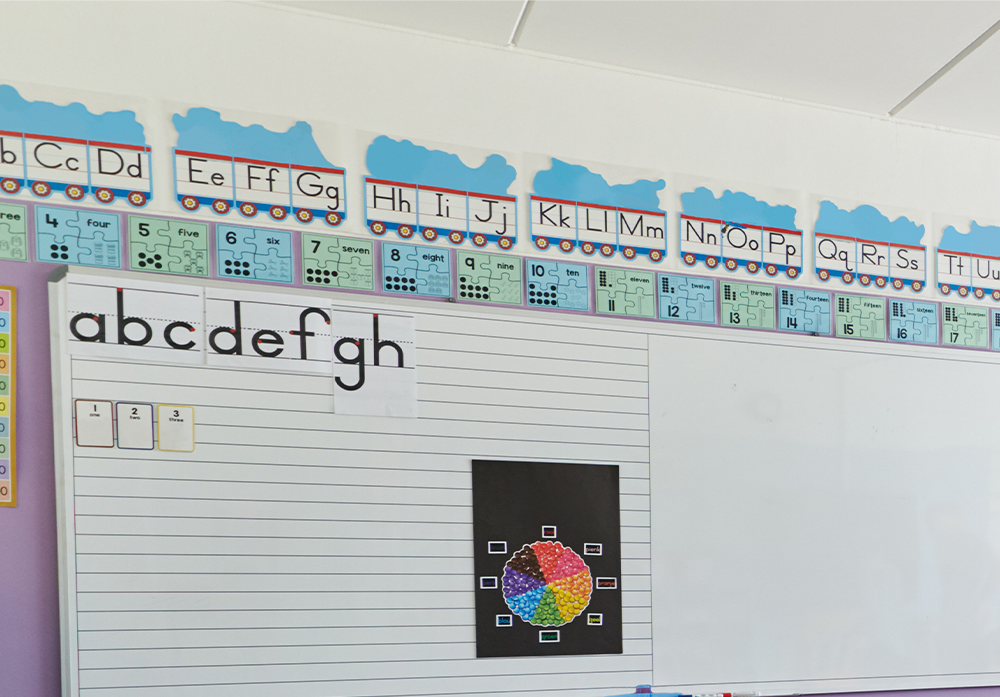 b Cc Dd
Ee Ff Gg
Hh Ii Jj
Kk Ll Mm
Nn Oo Pp
Qq Rr Ss
Tt Uu
ree
4 four
5 five
6 six
7 seven
8 eight
9 nine
10 ten
11 eleven
12 twelve
13 thirteen
14 fourteen
15 fifteen
16 sixteen
17 seventeen
abc
def
gh
1 one
2 two
3 three
0
0
0
0
0
0
0
0
0
0
pink
orange
green
blue